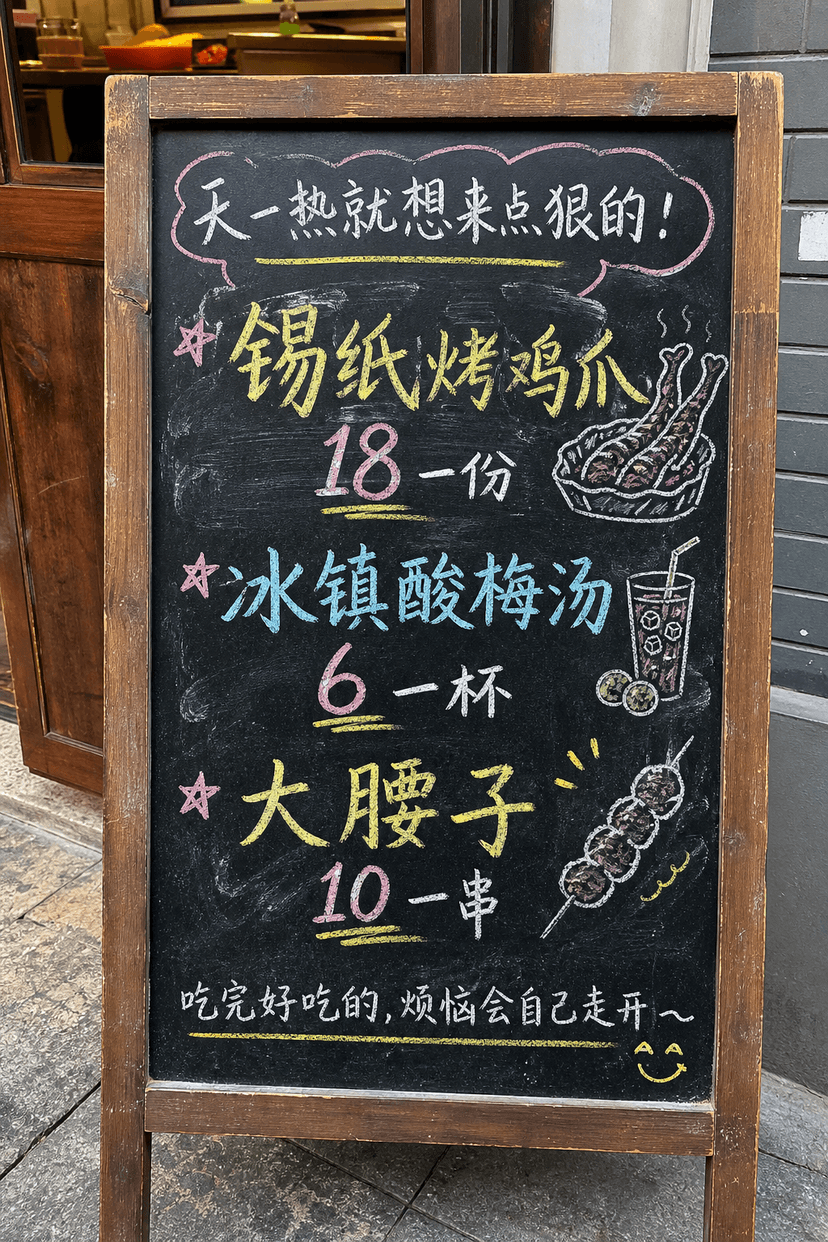 天一热就想来点狠的！
锡纸烤鸡爪
18一份
冰镇酸梅汤
6一杯
大腰子
10一串
吃完好吃的,烦恼会自己走开～